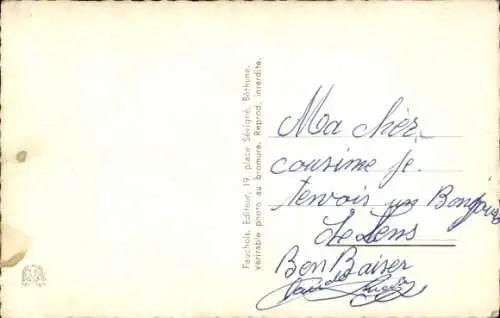 Fauchois, Editeur, 19, place Sévigné, Béthune.
Véritable photo au bromure. Reprod. interdite.
Ma chèr.
cousime je.
tenvois un Bonjour
De Lens
Bon Baiser